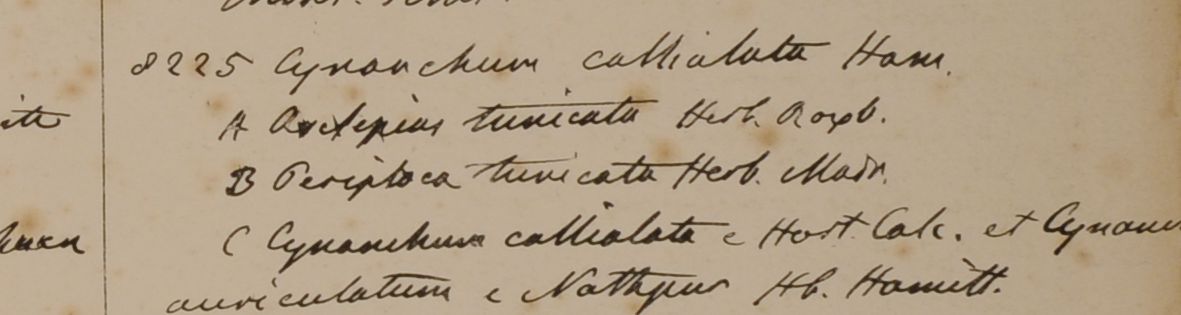 8225 Cynanchum callialata Ham.
A Asclepias tunicata Herb. Roxb.
B Periploca tunicata Herb. Madr.
C Cynanchum callialata e Hort. Calc. et Cynanc
auriculatum e Nathpur Hb. Hamilt.